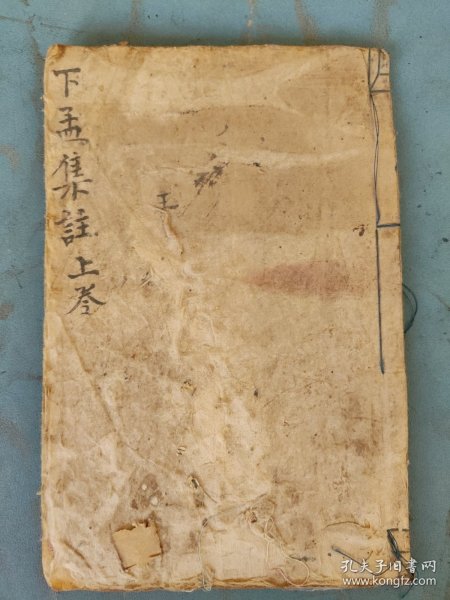 下孟集註上卷
王
孔夫子旧书网
www.kongfz.com